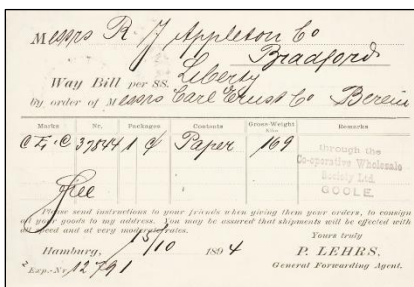 Messrs R J Appleton Co
Bradford
Way Bill per SS. Liberty
by order of Messrs Carl Ernst Co Berlin
Marks Nr. Packages Contents Gross-Weight Remarks
C E. C 37844 1 Paper 169
through the
Co-operative Wholesale
Society Ltd.
GOOLE.
free
Please send instructions to your friends when giving them your orders, to consign
all your goods to my address. You may be assured that shipments will be effected with
all speed and at very moderate rates.
Yours truly
Hamburg, 15/10 1894
P. LEHRS,
General Forwarding Agent.
Exp.-Nr. 12791